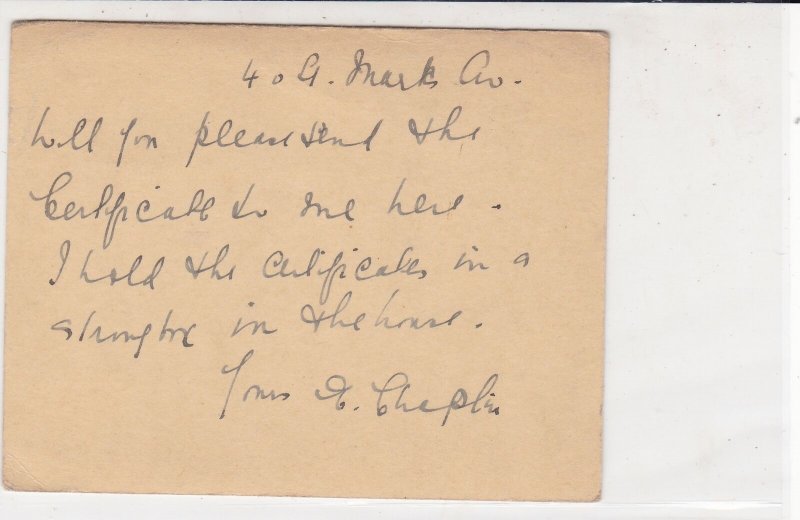 40 G. Marks Av.
Will you please send the
Certificate to me here.
I hold the certificates in a
strongbox in the house.
Yours A. Chaplin